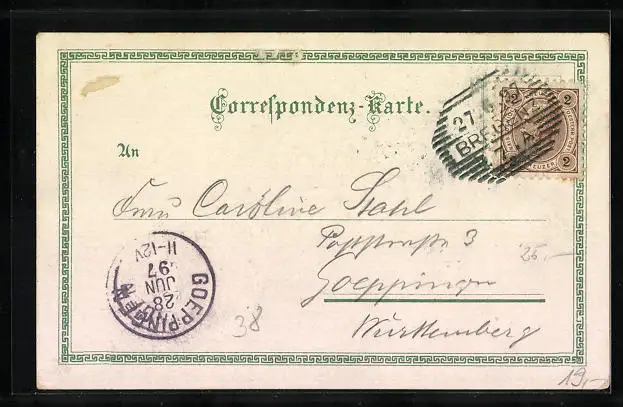 Correspondenz-Karte.
An
Frau Caroline Stahl
Poststrasse 3
Goeppingen
Württemberg
27 6
BREGENZ
2 2
2
KREUZER
GOEPPINGEN
28
JUN
97
11-12V
38
25,-
19,-